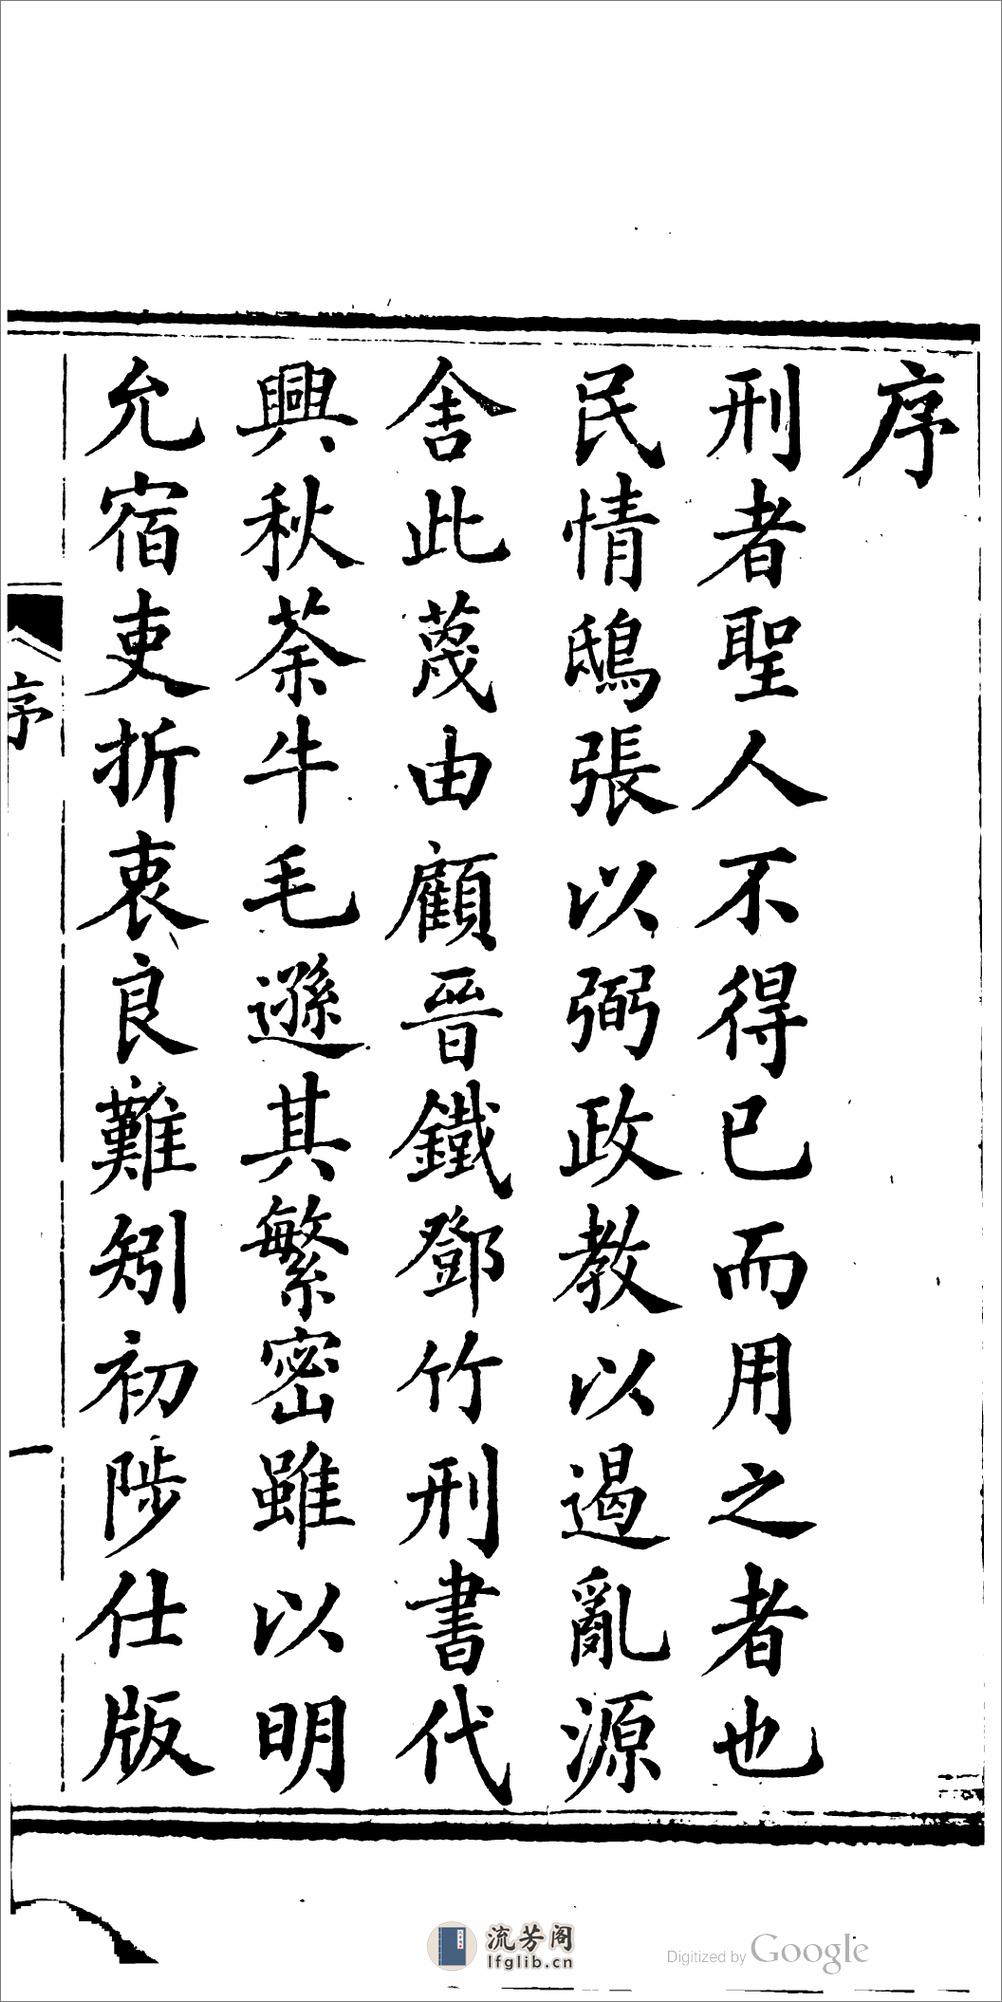 序
刑者聖人不得已而用之者也
民情鴟張以弼政教以遏亂源
舍此蔑由顧晉鐵鄧竹刑書代
興秋荼牛毛遜其繁密雖以明
允宿吏折衷良難矧初陟仕版
序
一
流芳阁
lfglib.cn
Digitized by Google